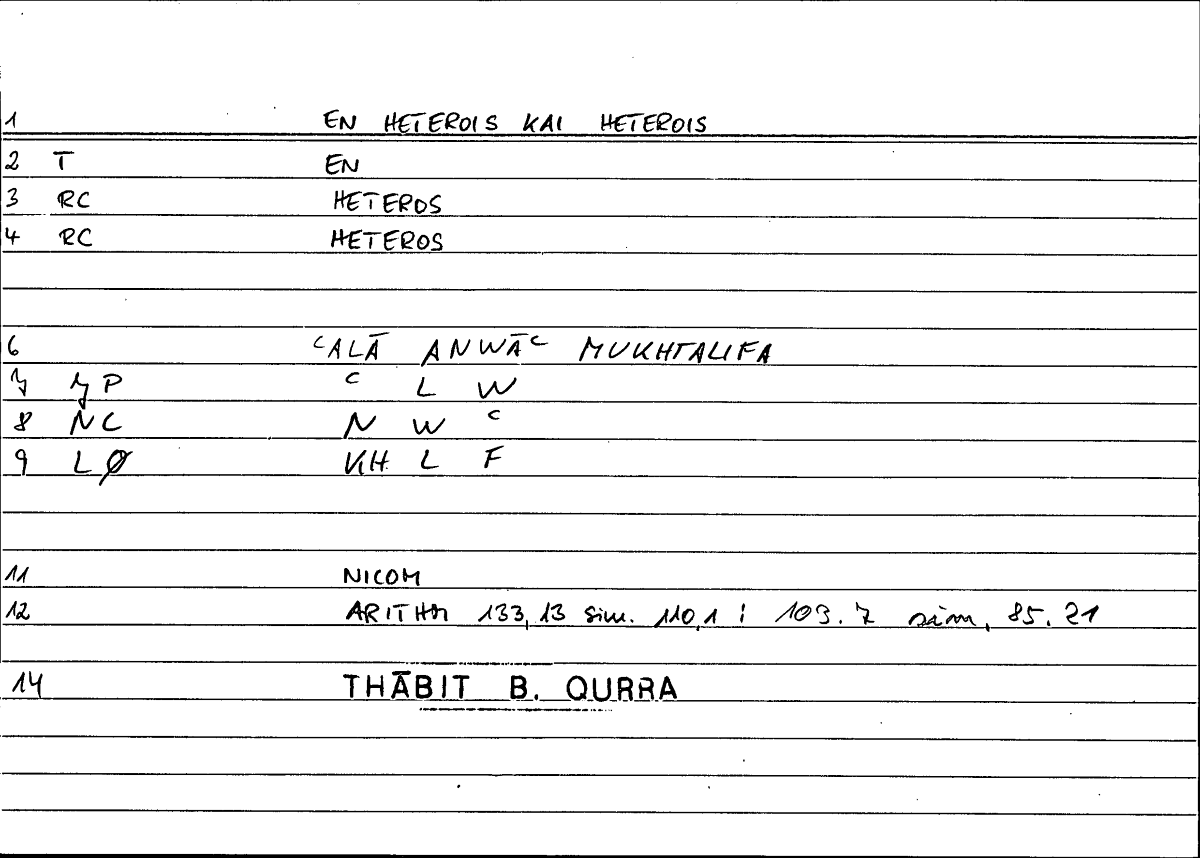 1 EN HETEROIS KAI HETEROIS
2 T EN
3 RC HETEROS
4 RC HETEROS
6 ʿALĀ ANWĀʿ MUKHTALIFA
7 ʿ L W
8 NC N W ʿ
9 LØ KH L F
11 NICOM
12 ARITHM 133,13 sim. 110,1 : 103.7 sim. 85.21
14 THĀBIT B. QURRA